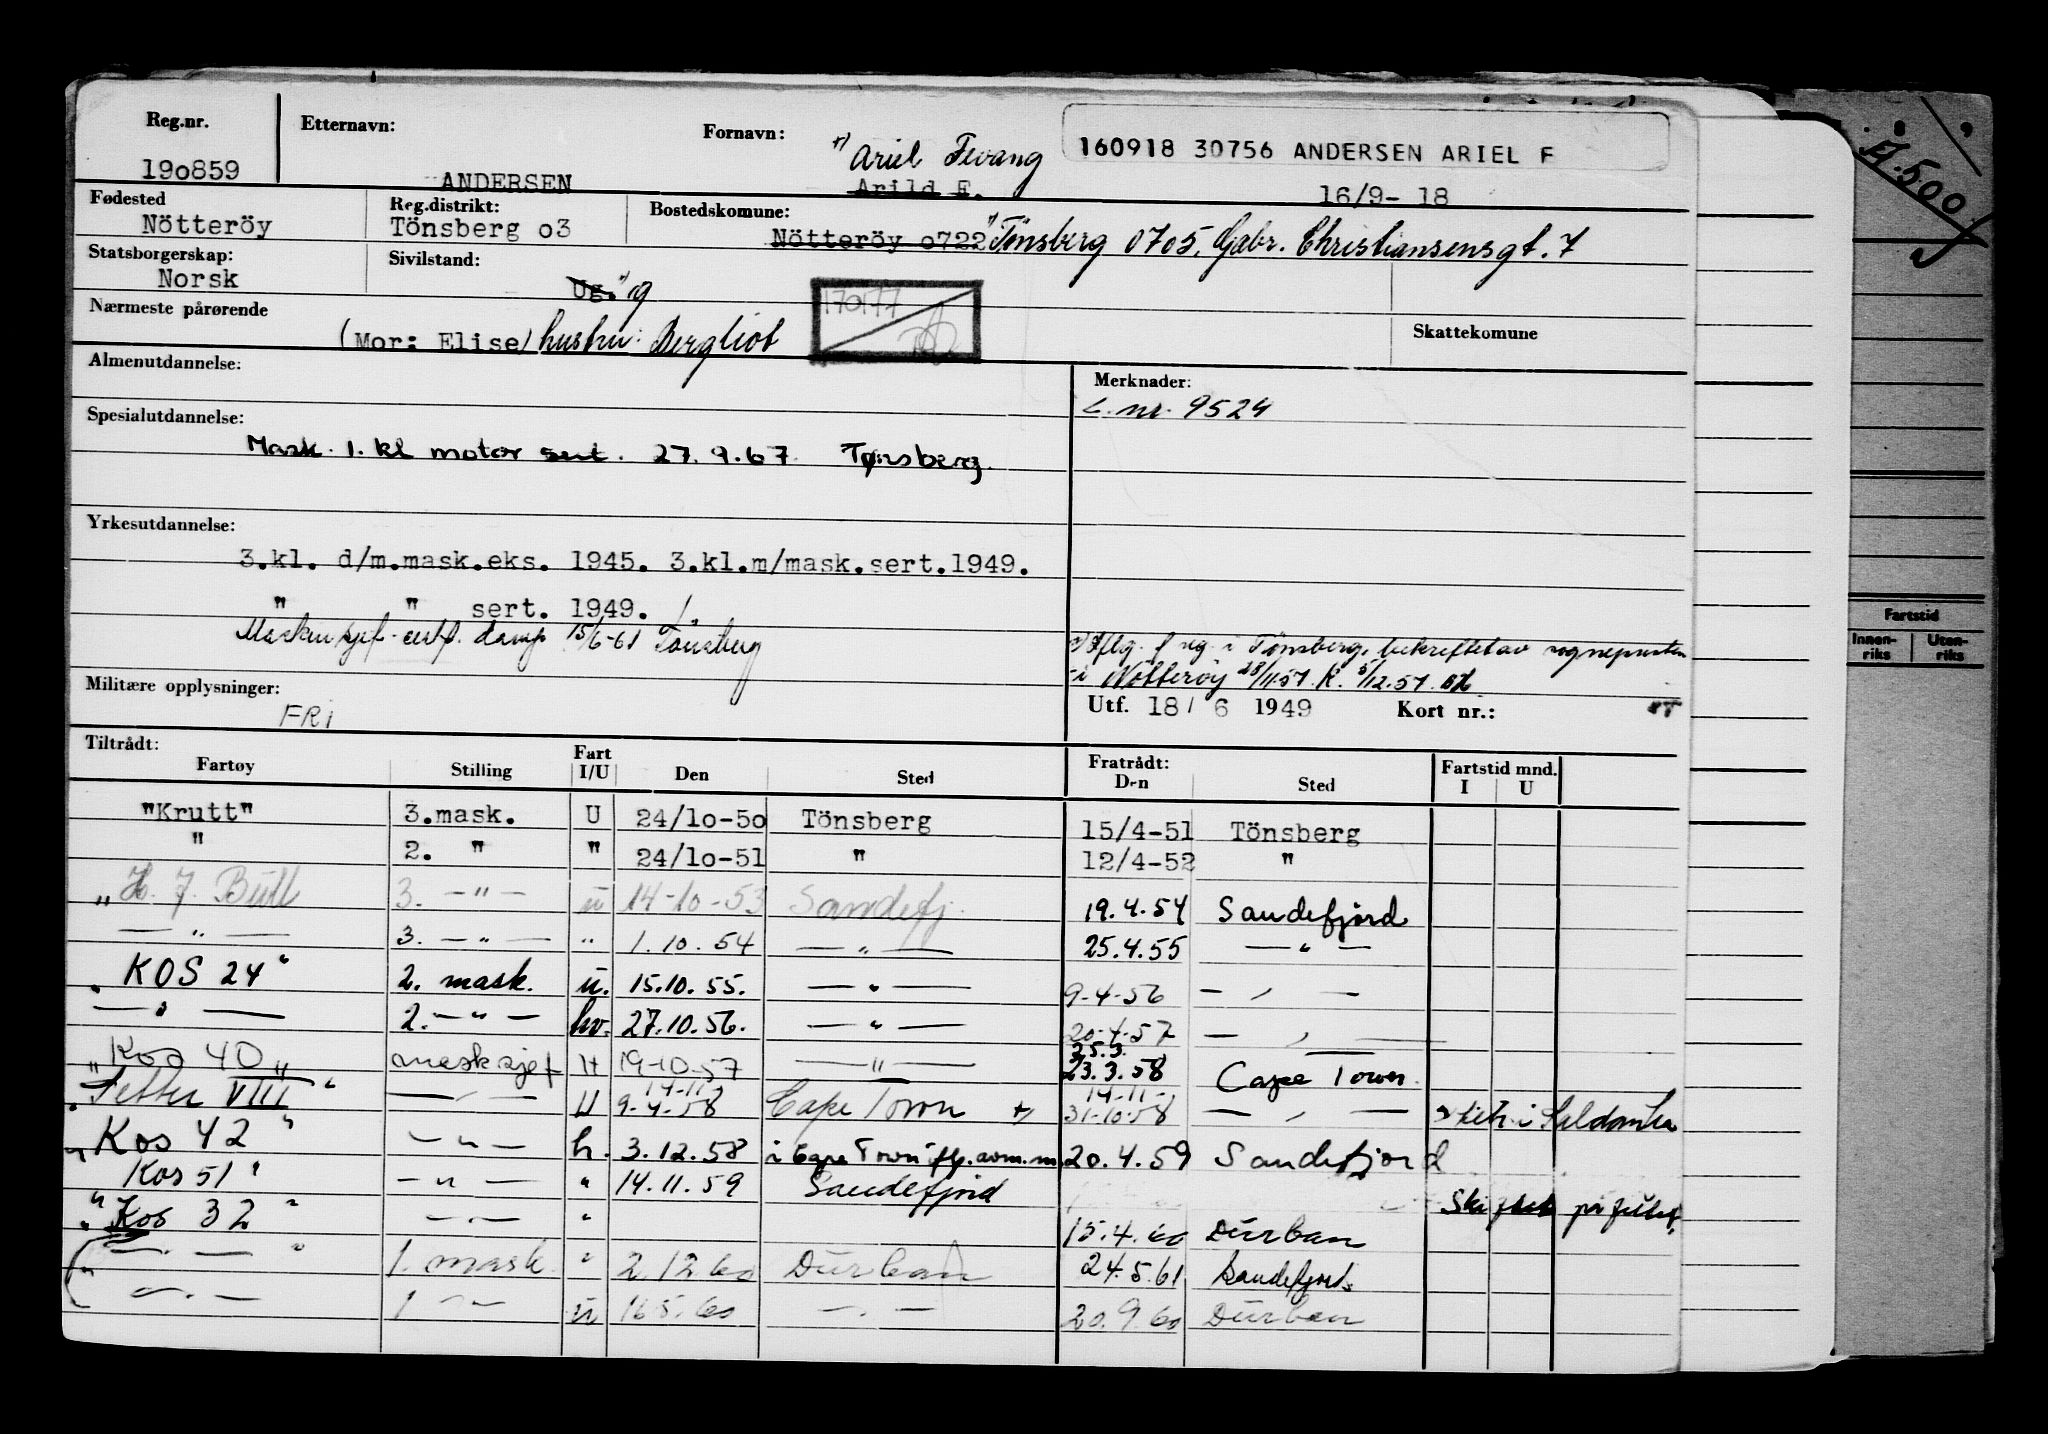 Reg.nr. Etternavn: Fornavn: *) Ariel Fevang 160918 30756 ANDERSEN ARIEL F
19o859 ANDERSEN Arild F. 16/9- 18
Fødested Reg.distrikt: Bostedskomune:
Nötteröy Tönsberg o3 Nötteröy o722 Tönsberg 0705, Gabr. Christiansensgt. 7
Statsborgerskap: Sivilstand:
Norsk Ug. g
170177
Nærmeste pårørende Skattekomune
(Mor: Elise) hustru: Bergliot
Almenutdannelse: Merknader:
L. nr. 9524
Spesialutdannelse:
Mask. 1. kl motor sert. 27.9.67 Tønsberg.
Yrkesutdannelse:
3.kl. d/m.mask.eks. 1945. 3.kl.m/mask.sert.1949.
" " sert. 1949.
Maskinsjef-cert. damp 15/6-61 Tönsberg
*) Iflg. reg. i Tönsberg, bekreftet av sognepresten
i Nötteröy 28/11.57. K. 5/12.57.
Militære opplysninger: Utf. 18/ 6 1949 Kort nr.:
FRI
Tiltrådt: Fratrådt: Fartstid mnd.
Fartøy Stilling Fart I/U Den Sted Den Sted I U
"Krutt" 3.mask. U 24/1o-5o Tönsberg 15/4-51 Tönsberg
" 2. " " 24/1o-51 " 12/4-52 "
"H. J. Bull 3. -"- u 14-10-53 Sandefj. 19.4.54 Sandefjord
-"- 3. -"- " 1.10.54 -"- 25.4.55 -"-
"KOS 24" 2. mask. u. 15.10.55. -"- 9-4-56 -"-
-"- 2. -"- hv. 27.10.56. -"- 20-4-57 -"-
25.3.
"Kos 40" masksjef H 19-10-57 -"- 23.3.58 Cape Town.
14-11- 14-11-
"Setter VIII" -"- U 9-4-58 Cape Town *) 31-10-58 -"-
"Kos 42" -"- h. 3.12.58 i Cape Town 20.4.59 Sandefjord
Kos 51" -"- " 14.11.59 Sandefjord Skiftet på feltet.
"Kos 32" -"- " 15.4.60 Durban
-"- 1. mask. " 2.12.60 Durban 24.5.61 Sandefjord.
-"- 1 -"- u 16.5.60 -"- 20.9.60 Durban
A.500
Fartstid
Innen- Uten-
riks riks